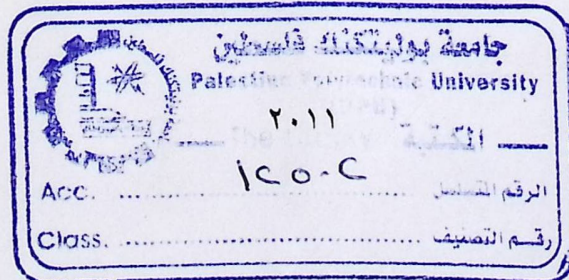 جامعة بوليتكنك فلسطين
Palestine Polytechnic University
(PPU)
٢٠١١
The Library المكتبة
Acc. ............ الرقم التسلسل
Class. ............ رقم التصنيف